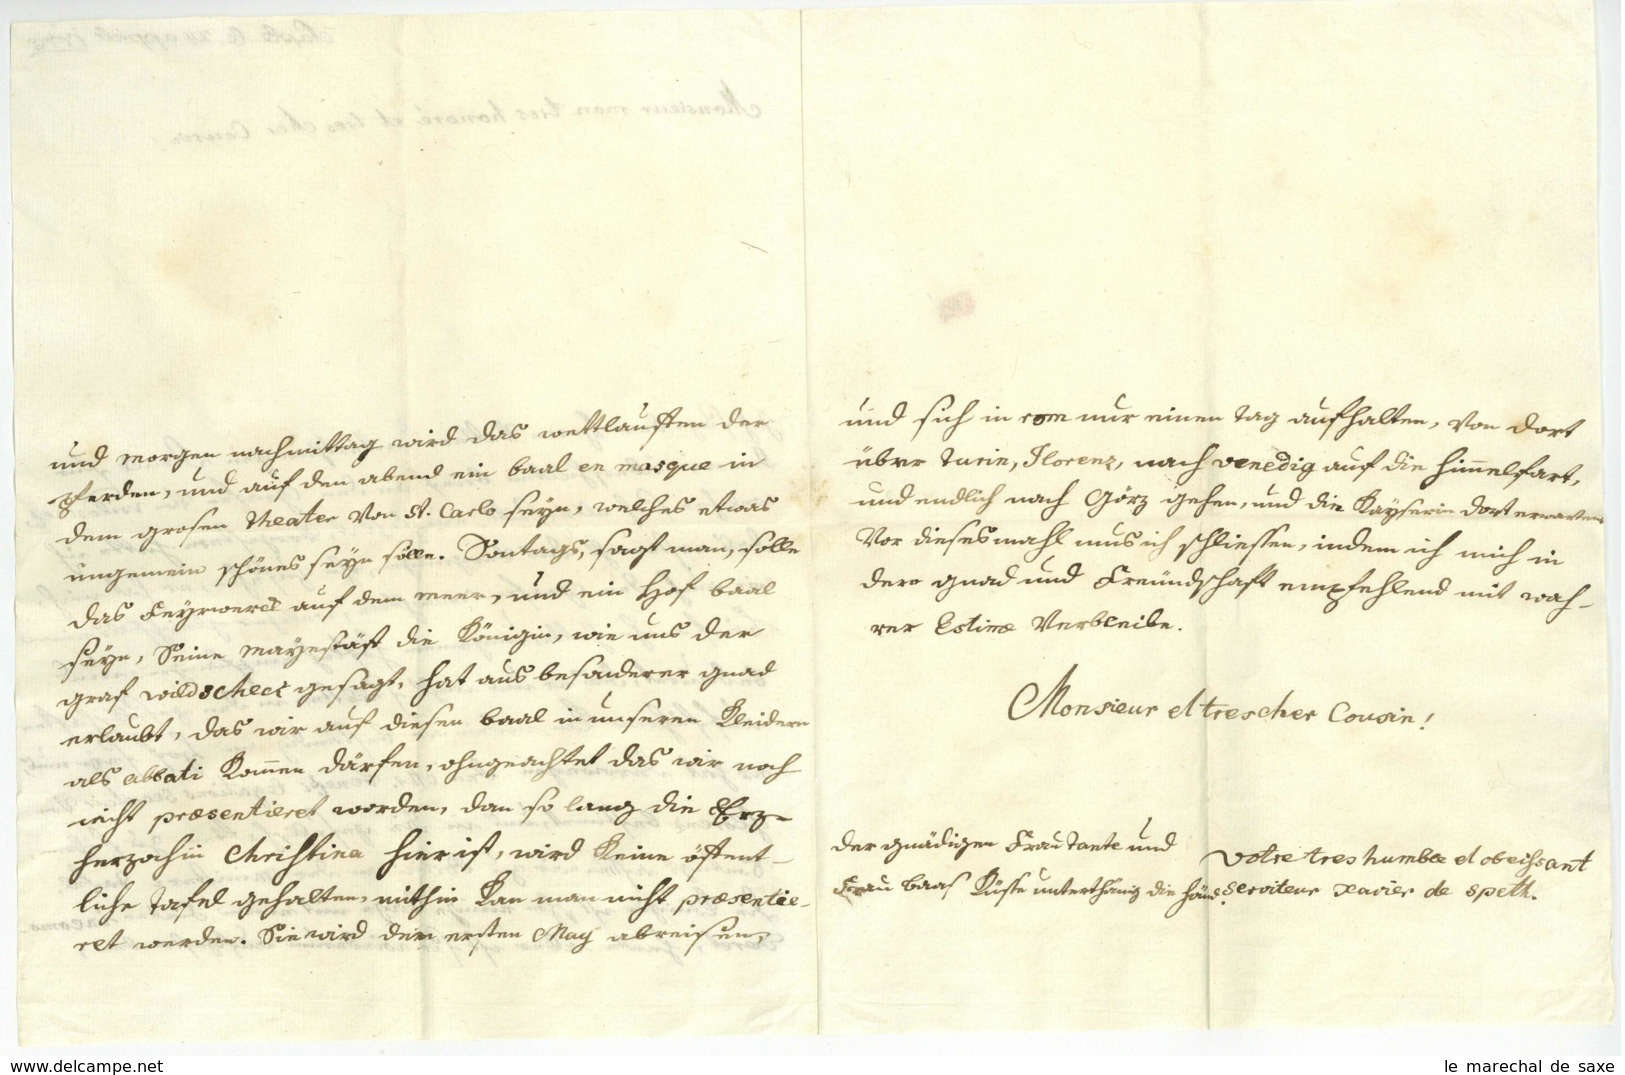 und morgen nachmittag wird das wettlauffen der
Pferden, und auf den abend ein baal en masque in
dem grosen theater von St. Carlo seyn, welches etwas
ungemein schönes seyn solle. Sontags, sagt man, solle
das Feyrwerck auf dem meer, und ein Hof baal
seyn, Seine mayestäft die Königin, wie uns der
graf wildscheck gesagt, hat aus besonderer gnad
erlaubt, das wir auf diesen baal in unseren Kleidern
als abbati Kom̅en därfen, ohngeachtet das wir noch
nicht præsentieret worden, dan so lang die Erz-
herzochin Christina hier ist, wird Keine öffent-
liche Tafel gehalten, mithin Kan man nicht præsentie-
ret werden. Sie wird den ersten May abreisen,
und sich in rom nur einen tag aufhalten, von dort
über Turin, Florenz, nach venedig auf die Him̅elfart,
und endlich nach Görz gehen, und die Kayserin dort erwarten
Vor diesesmahl mus ich schliessen, indem ich mich in
dero gnad und Freündschaft empfehlend mit wah-
rer Estime Verbleibe.
Monsieur et tres cher Cousin!
der gnädigen Frau Tante und
Frau baas Küsse unterthänig die händ.
votre tres humble et obeissant
serviteur xavier de speth.
www.delcampe.net
le marechal de saxe